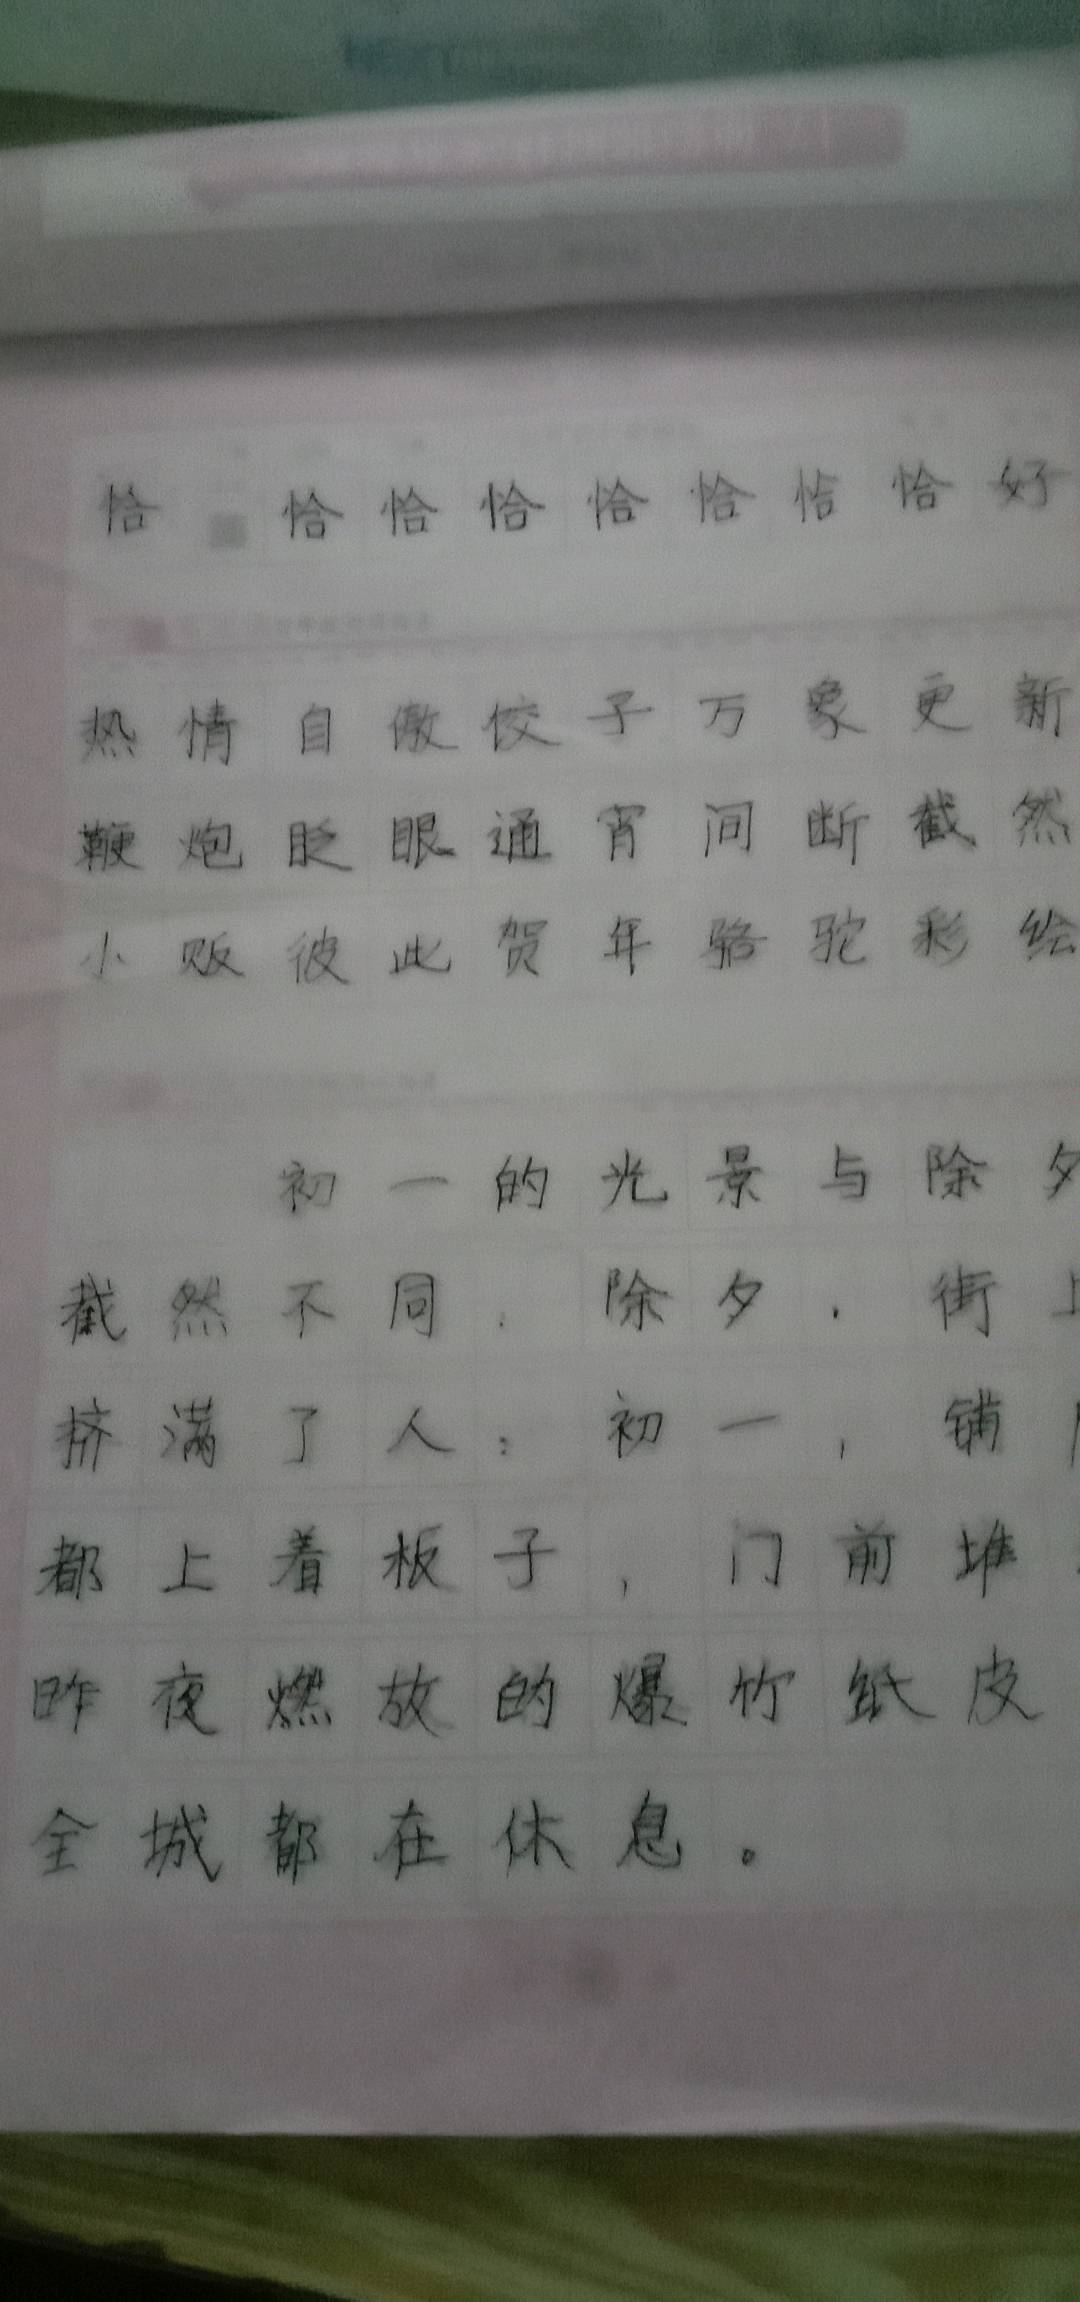 恰 恰 恰 恰 恰 恰 恰 恰 好
热 情 自 傲 饺 子 万 象 更 新
鞭 炮 眨 眼 通 宵 间 断 截 然
小 贩 彼 此 贺 年 骆 驼 彩 绘
初 一 的 光 景 与 除 夕
截 然 不 同 . 除 夕 . 街 上
挤 满 了 人 ; 初 一 , 铺
都 上 着 板 子 , 门 前 堆
昨 夜 燃 放 的 爆 竹 纸 皮
全 城 都 在 休 息 。